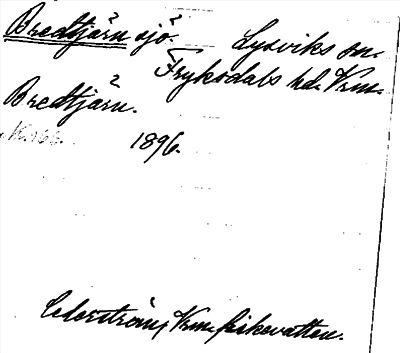 Bredtjärn sjö. Lysviks sn.
Fryksdals hd. Vrm.
Bredtjärn.
1896.
Cederström, Vrm. fiskevatten.